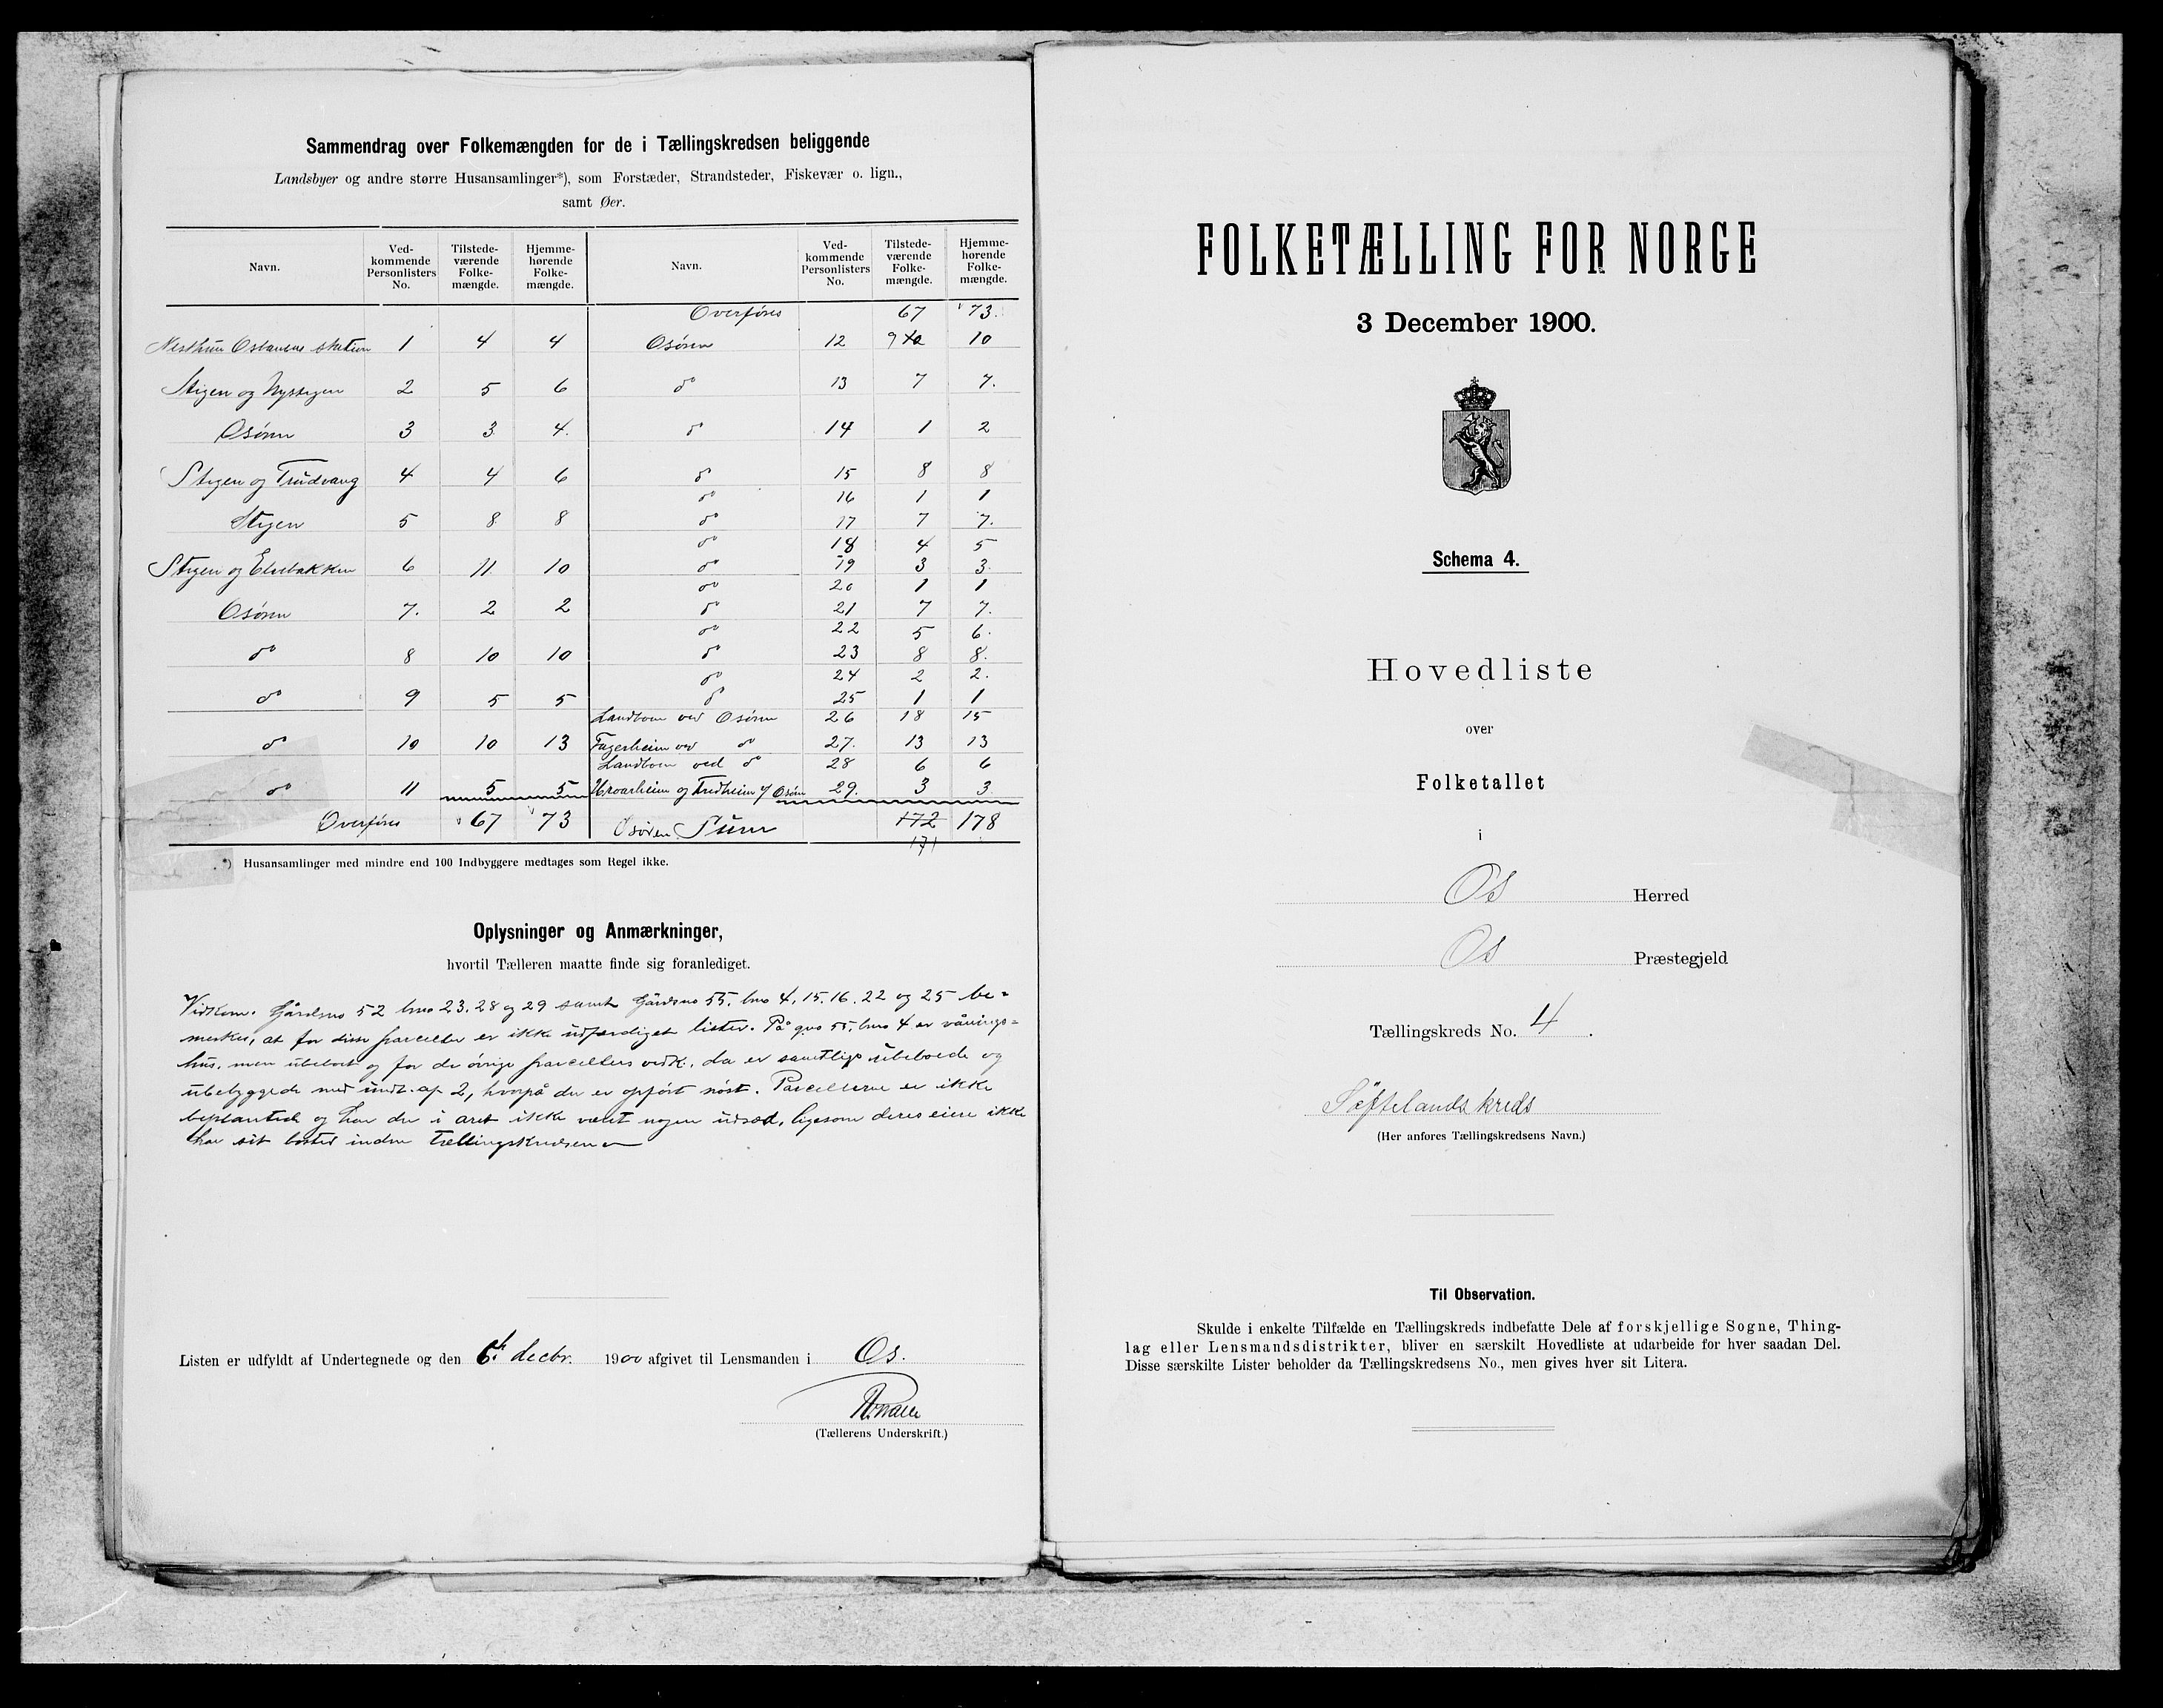 Sammendrag over Folkemængden for de i Tællingskredsen beliggende
Landsbyer og andre større Husansamlinger*), som Forstæder, Strandsteder, Fiskevær o. lign.,
samt Øer.
Navn. Ved-kommende Personlisters No. Tilstede-værende Folke-mængde. Hjemme-hørende Folke-mængde.
Nesthun Osbanens station 1 4 4
Stigen og Nystigen 2 5 6
Osøren 3 3 4.
Stigen og Trudvang 4 4 6
Stigen 5 8 8
Stigen og Elvebakken 6 11 10
Osøren 7. 2 2
do 8 10 10
do 9 5 5
do 10 10 13
do 11 5 5
Overføres 67 73
Navn. Ved-kommende Personlisters No. Tilstede-værende Folke-mængde. Hjemme-hørende Folke-mængde.
Overføres 67 73.
Osøren 12 9 10 10
do 13 7 7.
do 14 1 2
do 15 8 8
do 16 1 1
do 17 7 7.
do 18 4 5
do 19 3 3.
do 20 1 1
do 21 7 7.
do 22 5 6.
do 23 8 8.
do 24 2 2.
do 25 1 1
Landboen ved Osøren 26 18 15
Fagerheim ved do 27. 13 13
Landboen ved do 28 6 6
Hroarheim og Fredheim v/ Osøren 29. 3 3
Osøren Sum 172 178
171
*) Husansamlinger med mindre end 100 Indbyggere medtages som Regel ikke.
Oplysninger og Anmærkninger,
hvortil Tælleren maatte finde sig foranlediget.
Vidkom. Gårdsno 52 bno 23, 28 og 29 samt Gårdsno 55, bno 4, 15. 16. 22 og 25 be-
merkes, at for disse parceller er ikke udfærdiget lister. På gno 55, bno 4 er vånings-
hus, men ubeboet og for de øvrige parcellers vedk. da er samtlige ubeboede og
ubebyggede med undt. af 2, hvorpå der er opført nøst. Parcellerne er ikke
beplantede og har der i året ikke været nogen udsæd, ligesom deres eiere ikke
har sit bosted inden tællingskredsen
Listen er udfyldt af Undertegnede og den 6te decbr. 1900 afgivet til Lensmanden i Os.
(Tællerens Underskrift.)
FOLKETÆLLING FOR NORGE
3 December 1900.
Schema 4.
Hovedliste
over
Folketallet
i
Os Herred
Os Præstegjeld
Tællingskreds No. 4.
Søftelands kreds
(Her anføres Tællingskredsens Navn.)
Til Observation.
Skulde i enkelte Tilfælde en Tællingskreds indbefatte Dele af forskjellige Sogne, Thing-
lag eller Lensmandsdistrikter, bliver en særskilt Hovedliste at udarbeide for hver saadan Del.
Disse særskilte Lister beholder da Tællingskredsens No., men gives hver sit Litera.